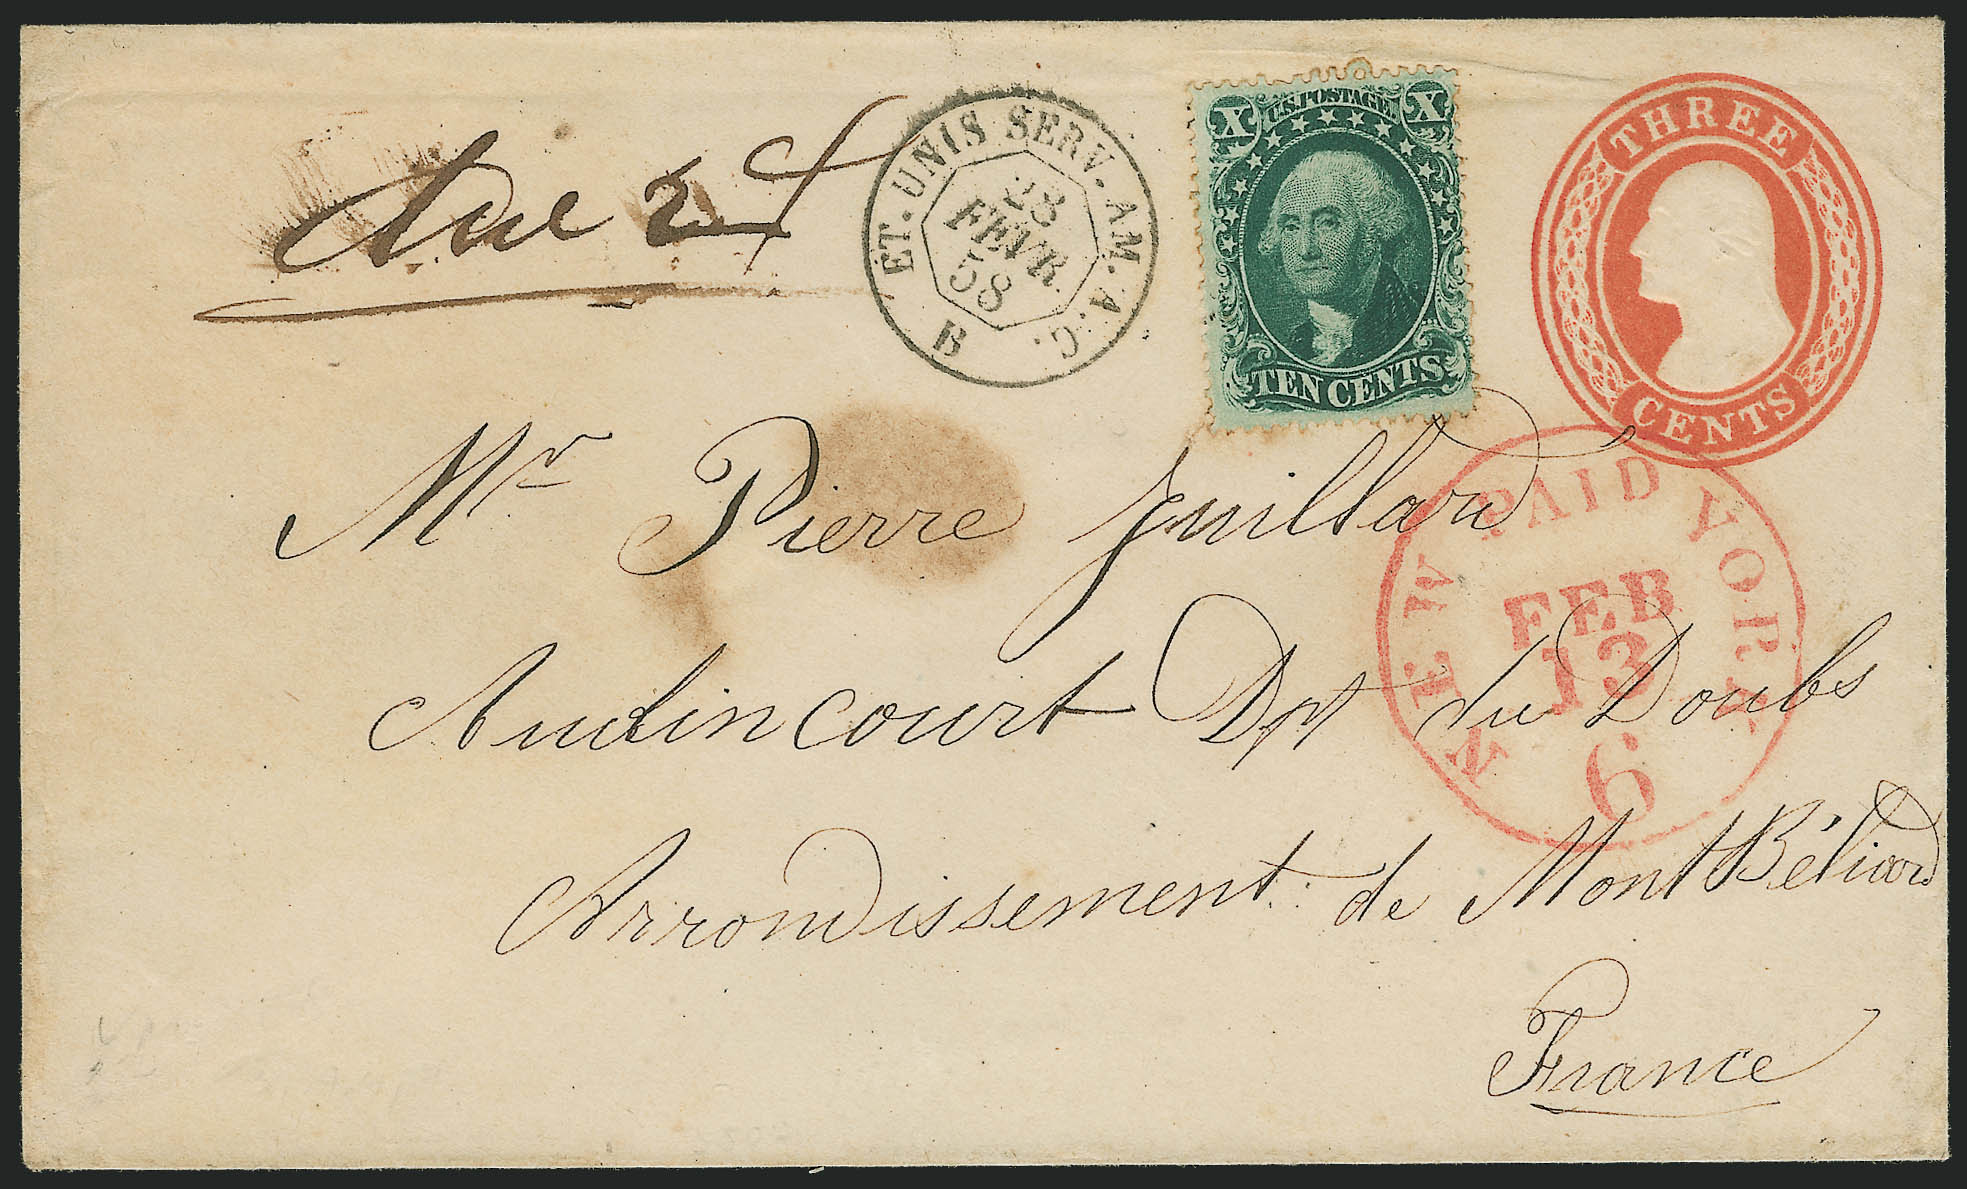 ET. UNIS SERV. AM. A. C.
23
FEVR.
58
B
X U.S. POSTAGE X
TEN CENTS
THREE
CENTS
NEW PAID YORK
FEB
13
6
Mr Pierre Juillard
Audincourt Dpt du Doubs
Arrondissement de MontBéliard
France